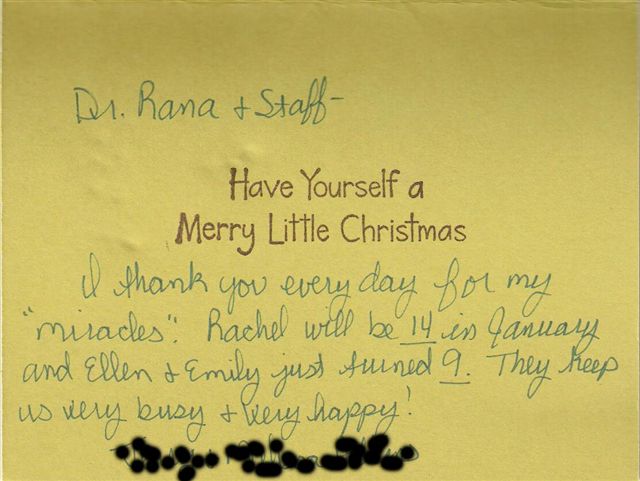 Dr. Rana & Staff-
Have Yourself a
Merry Little Christmas
I thank you every day for my
"miracles". Rachel will be 14 in January
and Ellen & Emily just turned 9. They keep
us very busy & very happy!